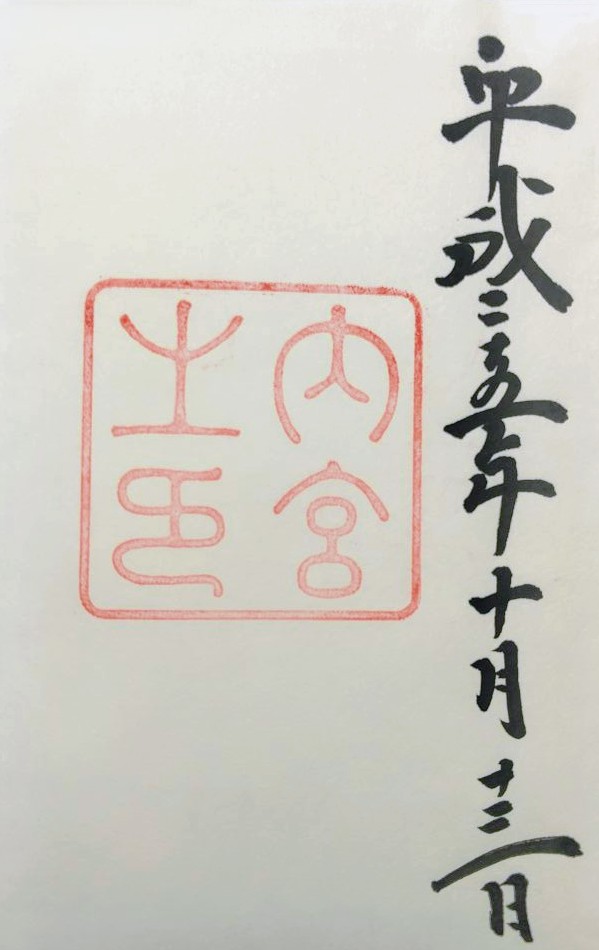 平成二十五年十月十三日
内宮
之印